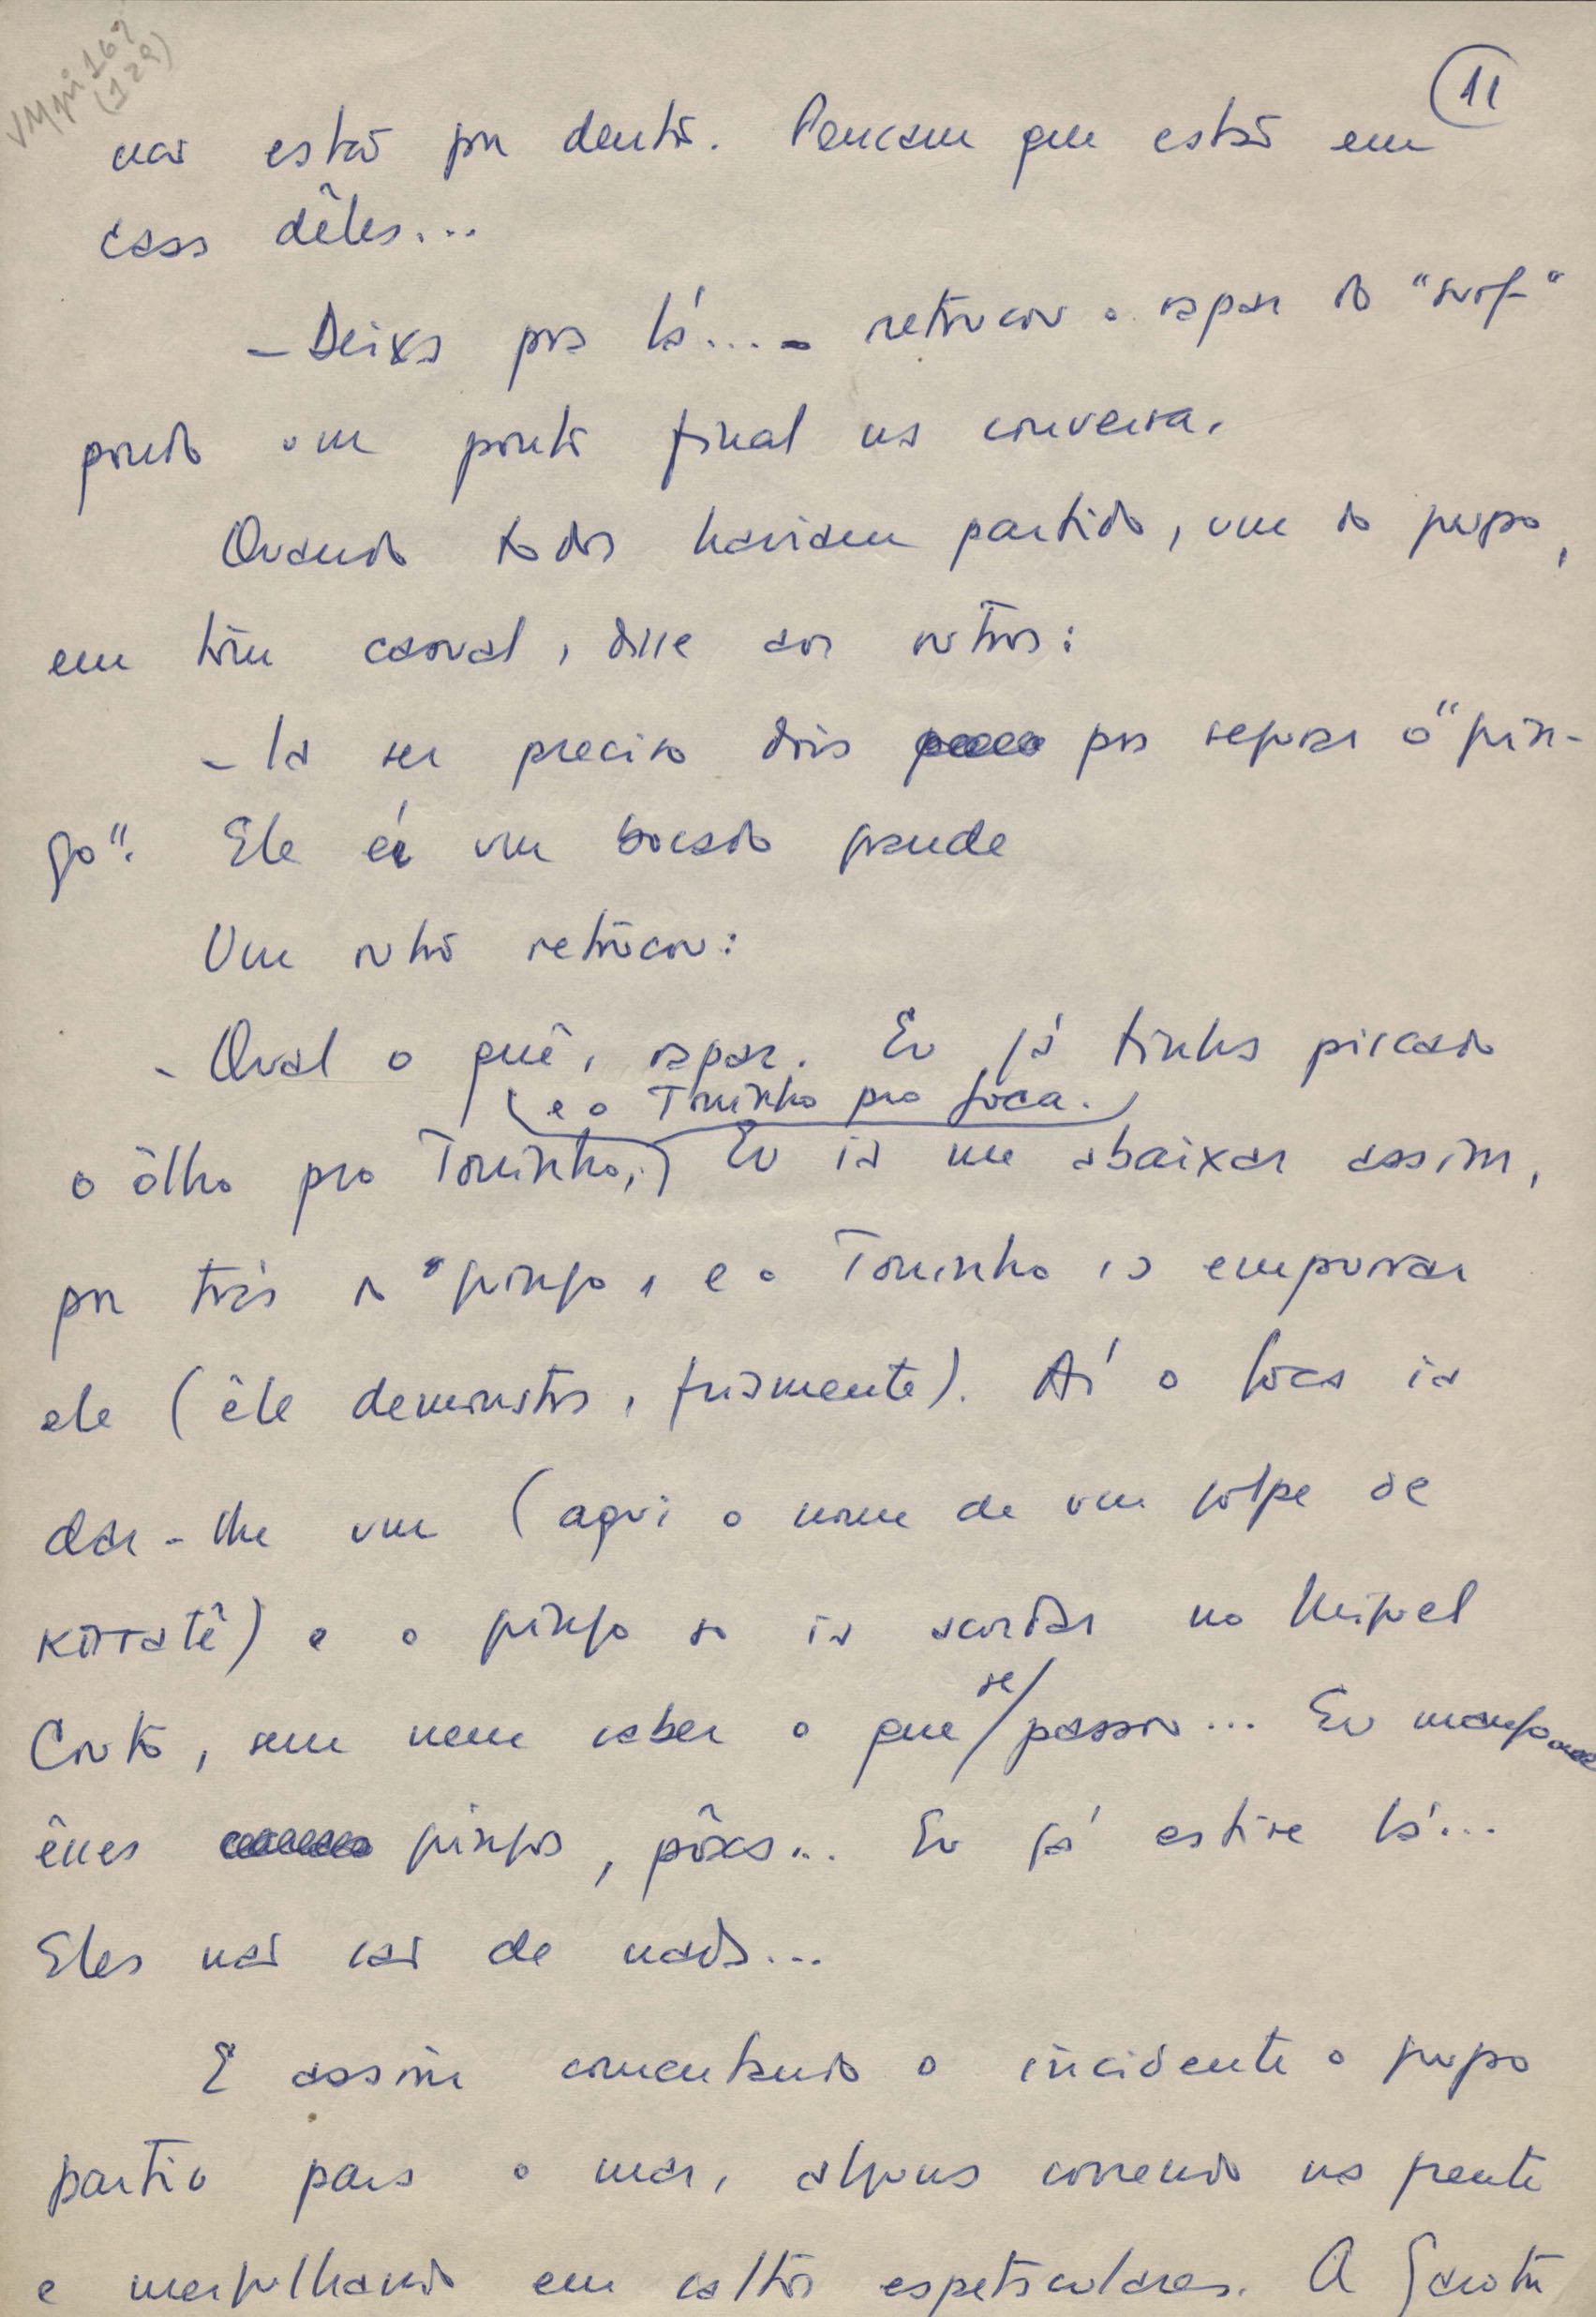 VMpi 167
(129)
11
não estão por dentro. Pensam que estão em
casa dêles...
- Deixa pra lá... - retrucou o rapaz do "surf"
pondo um ponto final na conversa.
Quando todos haviam partido, um do grupo,
em tom casual, disse aos outros:
- Ia ser preciso dois pra segurar o "grin-
go". Ele é um bocado grande
Um outro retrucou:
- Qual o quê, rapaz. Eu já tinha piscado
e o Toninho pro Joca.
o ôlho pro Toninho, Eu ia me abaixar assim,
por trás do gringo, e o Toninho ia empurrar
ele (êle demonstra, friamente). Aí o Joca ia
dar-lhe um (aqui o nome de um golpe de
karatê) e o gringo só ia acordar no Miguel
Couto, sem nem saber o que se passou... Eu manjo
êsses gringos, pôxa... Eu já estive lá...
Eles não são de nada...
E assim comentando o incidente o grupo
partiu para o mar, alguns correndo na frente
e mergulhando em saltos espetaculares. A Garota